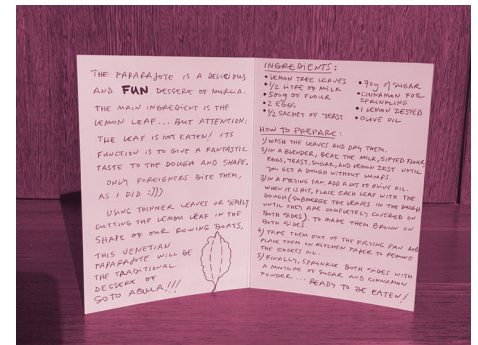 THE PAPARAJOTE IS A DELICIOUS
AND FUN DESSERT OF MURCIA.
THE MAIN INGREDIENT IS THE
LEMON LEAF... BUT ATTENTION:
THE LEAF IS NOT EATEN! ITS
FUNCTION IS TO GIVE A FANTASTIC
TASTE TO THE DOUGH AND SHAPE.
ONLY FOREIGNERS BITE THEM,
AS I DID :)))
USING THINNER LEAVES OR SIMPLY
CUTTING THE LEMON LEAF IN THE
SHAPE OF OUR ROWING BOATS,
THIS VENETIAN
PAPARAJOTE WILL BE
THE TRADITIONAL
DESSERT OF
SOTO AQUA!!!
INGREDIENTS:
• LEMON TREE LEAVES
• 1/2 LITRE OF MILK
• 500g OF FLOUR
• 2 EGGS
• 1/2 SACHET OF YEAST
• 70g OF SUGAR
• CINNAMON FOR
SPRINKLING
• 1 LEMON ZESTED
• OLIVE OIL
HOW TO PREPARE:
1) WASH THE LEAVES AND DRY THEM.
2) IN A BLENDER, BEAT THE MILK, SIFTED FLOUR,
EGGS, YEAST, SUGAR, AND LEMON ZEST UNTIL
YOU GET A DOUGH WITHOUT LUMPS.
3) IN A FRYING PAN ADD A LOT OF OLIVE OIL.
WHEN IT IS HOT, PLACE EACH LEAF WITH THE
DOUGH (SUBMERGE THE LEAVES IN THE DOUGH
UNTIL THEY ARE COMPLETELY COVERED ON
BOTH SIDES). TO MAKE THEM BROWN ON
BOTH SIDES.
4) TAKE THEM OUT OF THE FRYING PAN AND
PLACE THEM ON KITCHEN PAPER TO REMOVE
THE EXCESS OIL.
5) FINALLY, SPRINKLE BOTH SIDES WITH
A MIXTURE OF SUGAR AND CINNAMON
POWDER... READY TO BE EATEN!